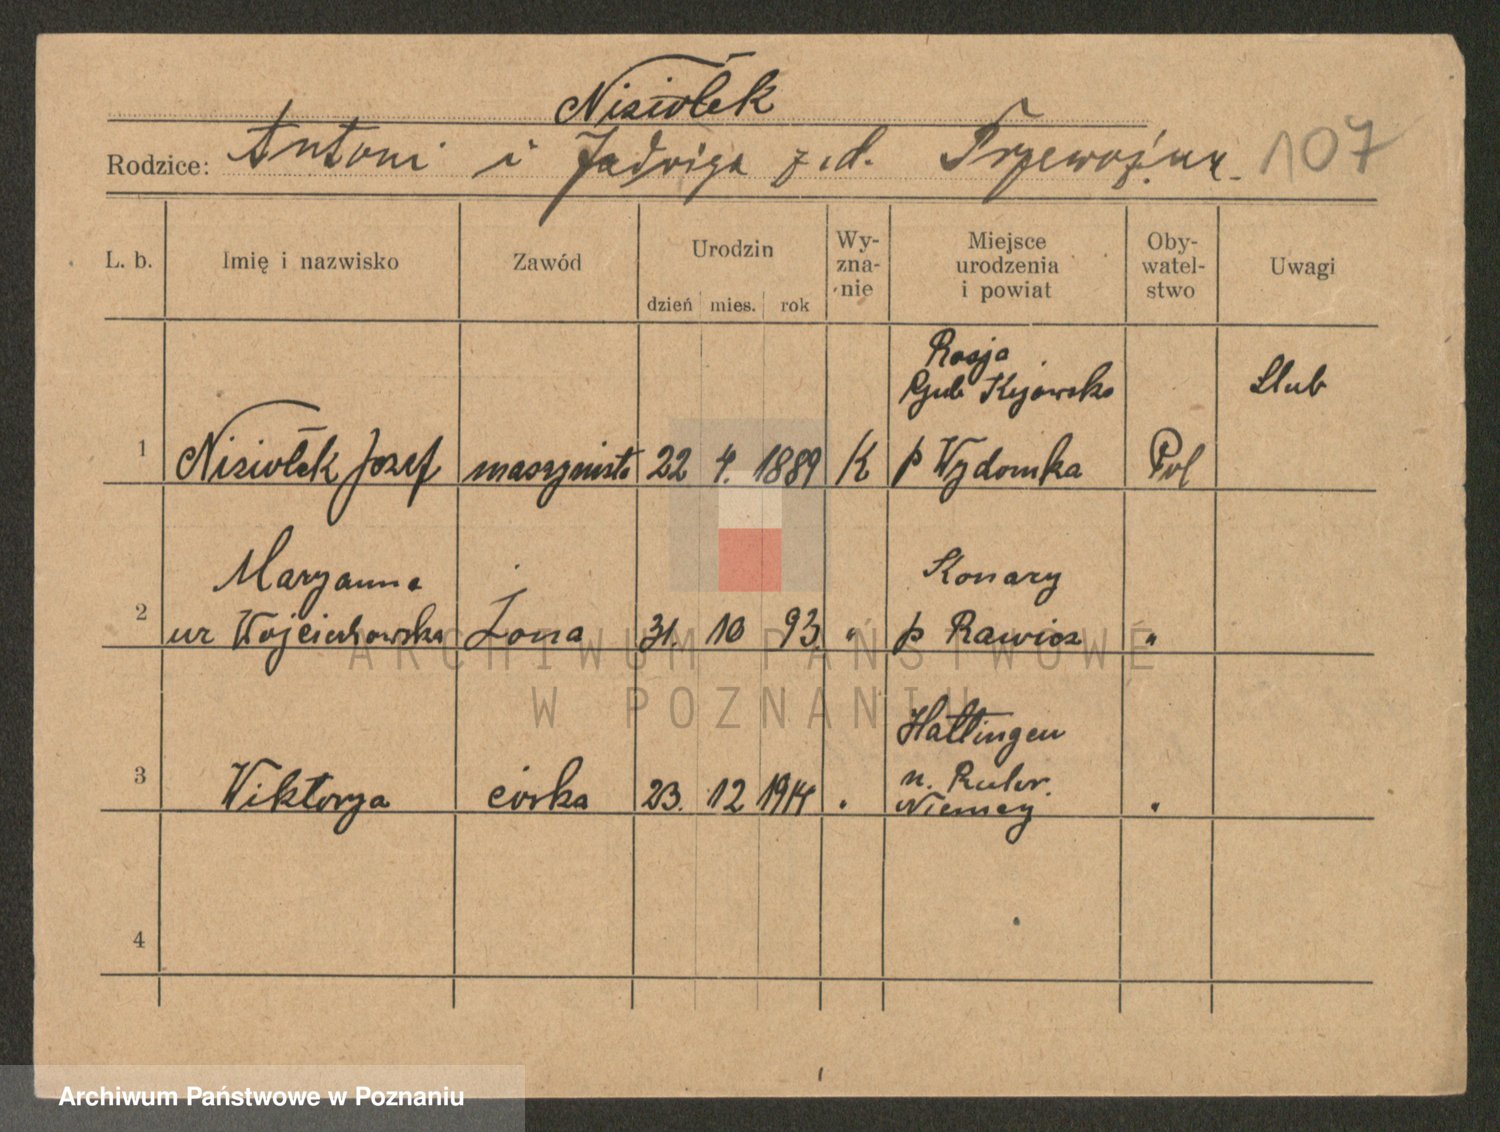 Nisiołek
Rodzice: Antoni i Jadwiga z. d. Przewoźna
107
L. b.
Imię i nazwisko
Zawód
Urodzin
dzień mies. rok
Wy-
zna-
nie
Miejsce
urodzenia
i powiat
Oby-
watel-
stwo
Uwagi
Rosja
Gub Kijowska
Slub
1 Nisiołek Jozef maszynista 22 4. 1889 K p Wydomka Pol
Maryanna
Konary
2 ur Wojciechowska Żona 31. 10 93. " p Rawicz "
Hattingen
n. Ruhr.
3 Viktorya córka 23. 12 1914 " Niemcy "
4
ARCHIWUM PAŃSTWOWE
W POZNANIU
Archiwum Państwowe w Poznaniu